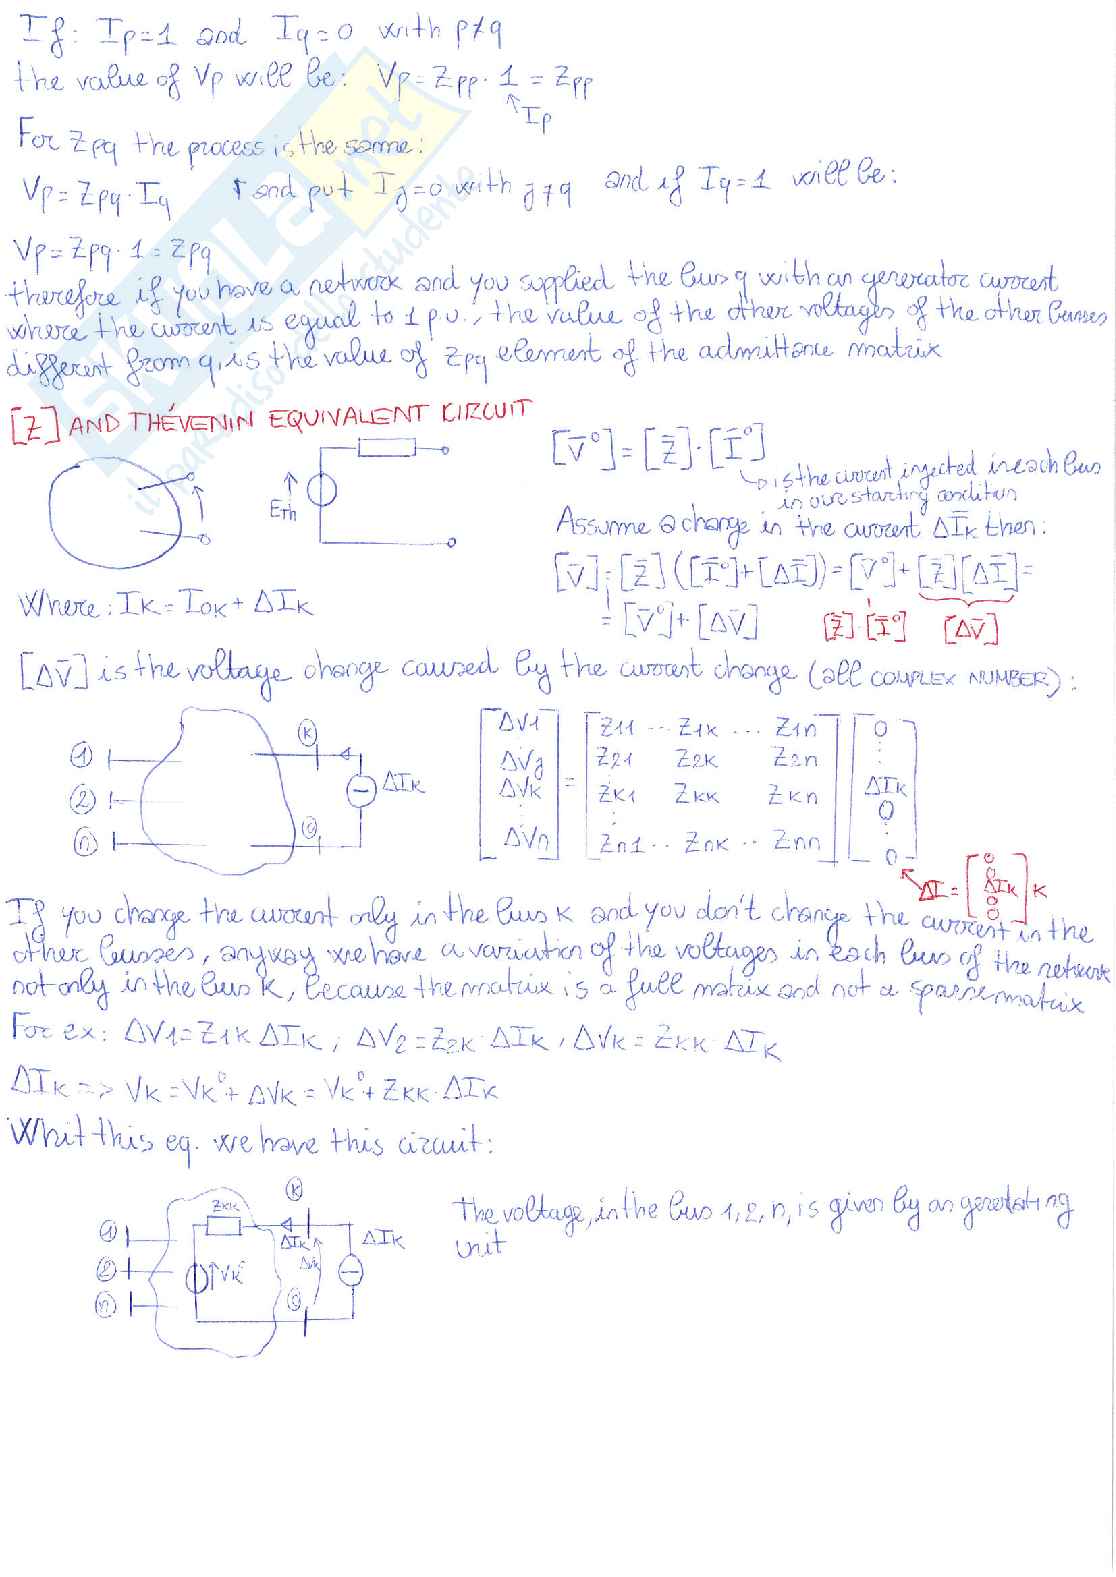 If: Ip=1 and Iq=0 with p≠q
the value of Vp will be: Vp=Zpp·1=Zpp
Ip
For Zpq the process is the same:
Vp=Zpq·Iq and put Ij=0 with j≠q and if Iq=1 will be:
Vp=Zpq·1=Zpq
therefore if you have a network and you supplied the bus q with an generator current
where the current is equal to 1 p.u., the value of the other voltages of the other busses
different from q, is the value of Zpq element of the admittance matrix
[Z] AND THÉVENIN EQUIVALENT KIRCUIT
ETh
[V̄°]=[Z̄]·[Ī°]
is the current injected in each bus
in our starting condition
Assume a change in the current ΔĪk then:
[V̄]=[Z̄]([Ī°]+[ΔĪ])=[V̄°]+[Z̄][ΔĪ]=
=[V̄°]+[ΔV̄] [Z̄]·[Ī°] [ΔV̄]
Where: Ik=Iok+ΔIk
[ΔV̄] is the voltage change caused by the current change (all COMPLEX NUMBER):
1 2 n k 0 ΔIk
[ΔV1 : ΔVj ΔVk : ΔVn] = [Z11 ... Z1k ... Z1n
Z21 Z2k Z2n
Zk1 Zkk Zkn
:
Zn1 .. Znk .. Znn] [0 : ΔIk 0 : 0]
ΔI=[0 0 ΔIk 0 0] k
If you change the current only in the bus k and you don't change the current in the
other busses, anyway we have a variation of the voltages in each bus of the network
not only in the bus k, because the matrix is a full matrix and not a sparse matrix
For ex: ΔV1=Z1k ΔIk; ΔV2=Z2k·ΔIk, ΔVk=Zkk·ΔIk
ΔIk => Vk=Vk°+ΔVk=Vk°+Zkk·ΔIk
Whit this eq. we have this circuit:
1 2 n Zkk Vk° k ΔIk ΔVk 0 ΔIk
The voltage, in the bus 1, 2, n, is given by an generating
unit
SKUOLA.not
il paradiso dello studente